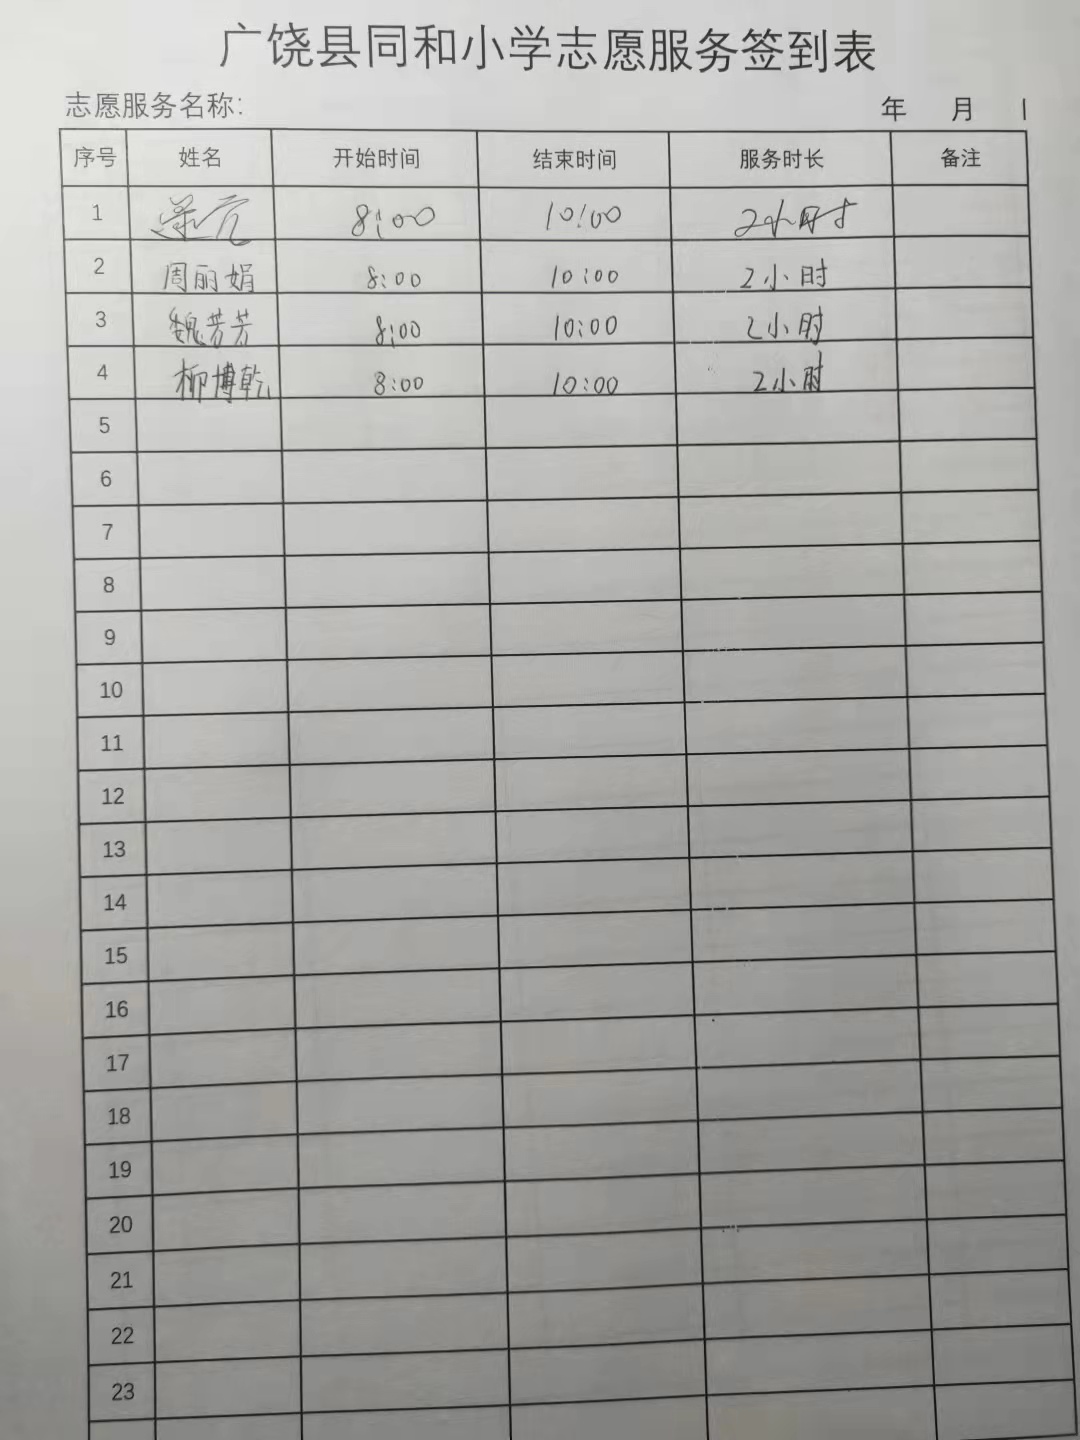 广饶县同和小学志愿服务签到表
志愿服务名称:
年 月
序号 姓名 开始时间 结束时间 服务时长 备注
1 8:00 10:00 2小时
2 周丽娟 8:00 10:00 2小时
3 魏芳芳 8:00 10:00 2小时
4 柳博乾 8:00 10:00 2小时
5
6
7
8
9
10
11
12
13
14
15
16
17
18
19
20
21
22
23